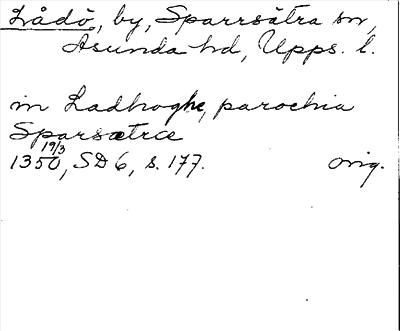 Lådö, by, Sparrsätra sn,
Asunda hd, Upps. l.
in Ladhoghe, parochia
Sparsætrce
19/3
1350, SD 6, s. 177. orig.